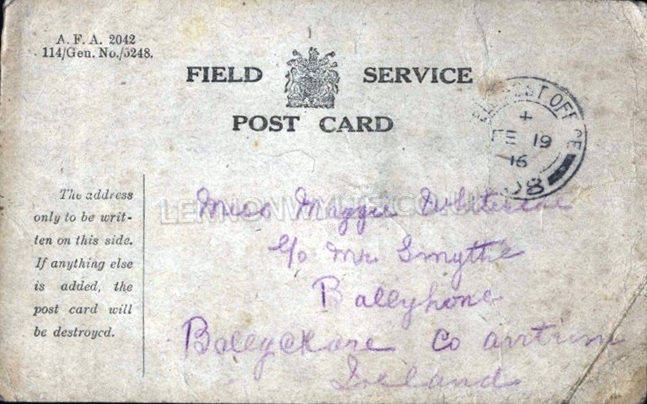 A. F. A. 2042
114/Gen. No./5248.
FIELD SERVICE
POST CARD
FIELD POST OFFICE
+
FE 19
16
The address
only to be writ-
ten on this side.
If anything else
is added, the
post card will
be destroyed.
LENNONWYLIE.CO.UK
Miss Maggie
c/o Mr. Smythe
Ballyhone
Ballyclare Co antrim
Ireland